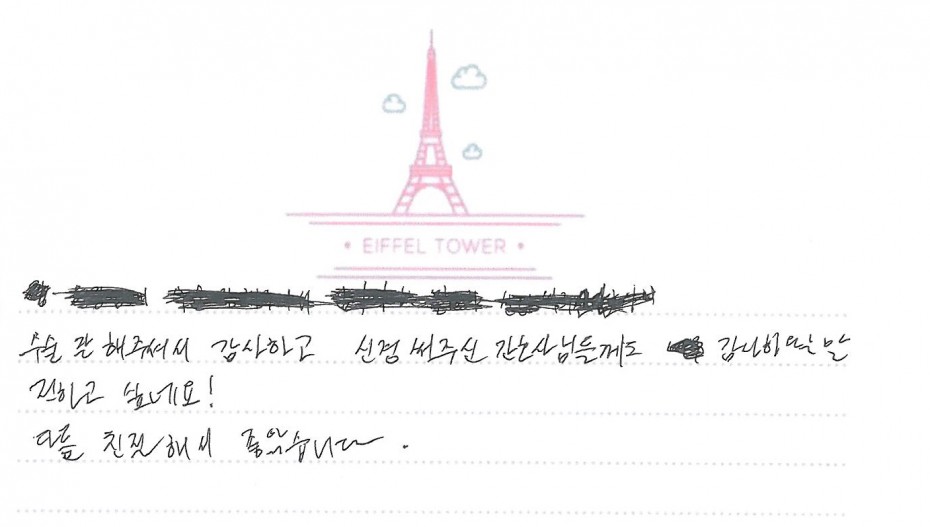 EIFFEL TOWER
수술 잘 해주셔서 감사하고 신경 써주신 간호사님들께도 감사하다는 말
전하고 싶네요!
다들 친절해서 좋았습니다.